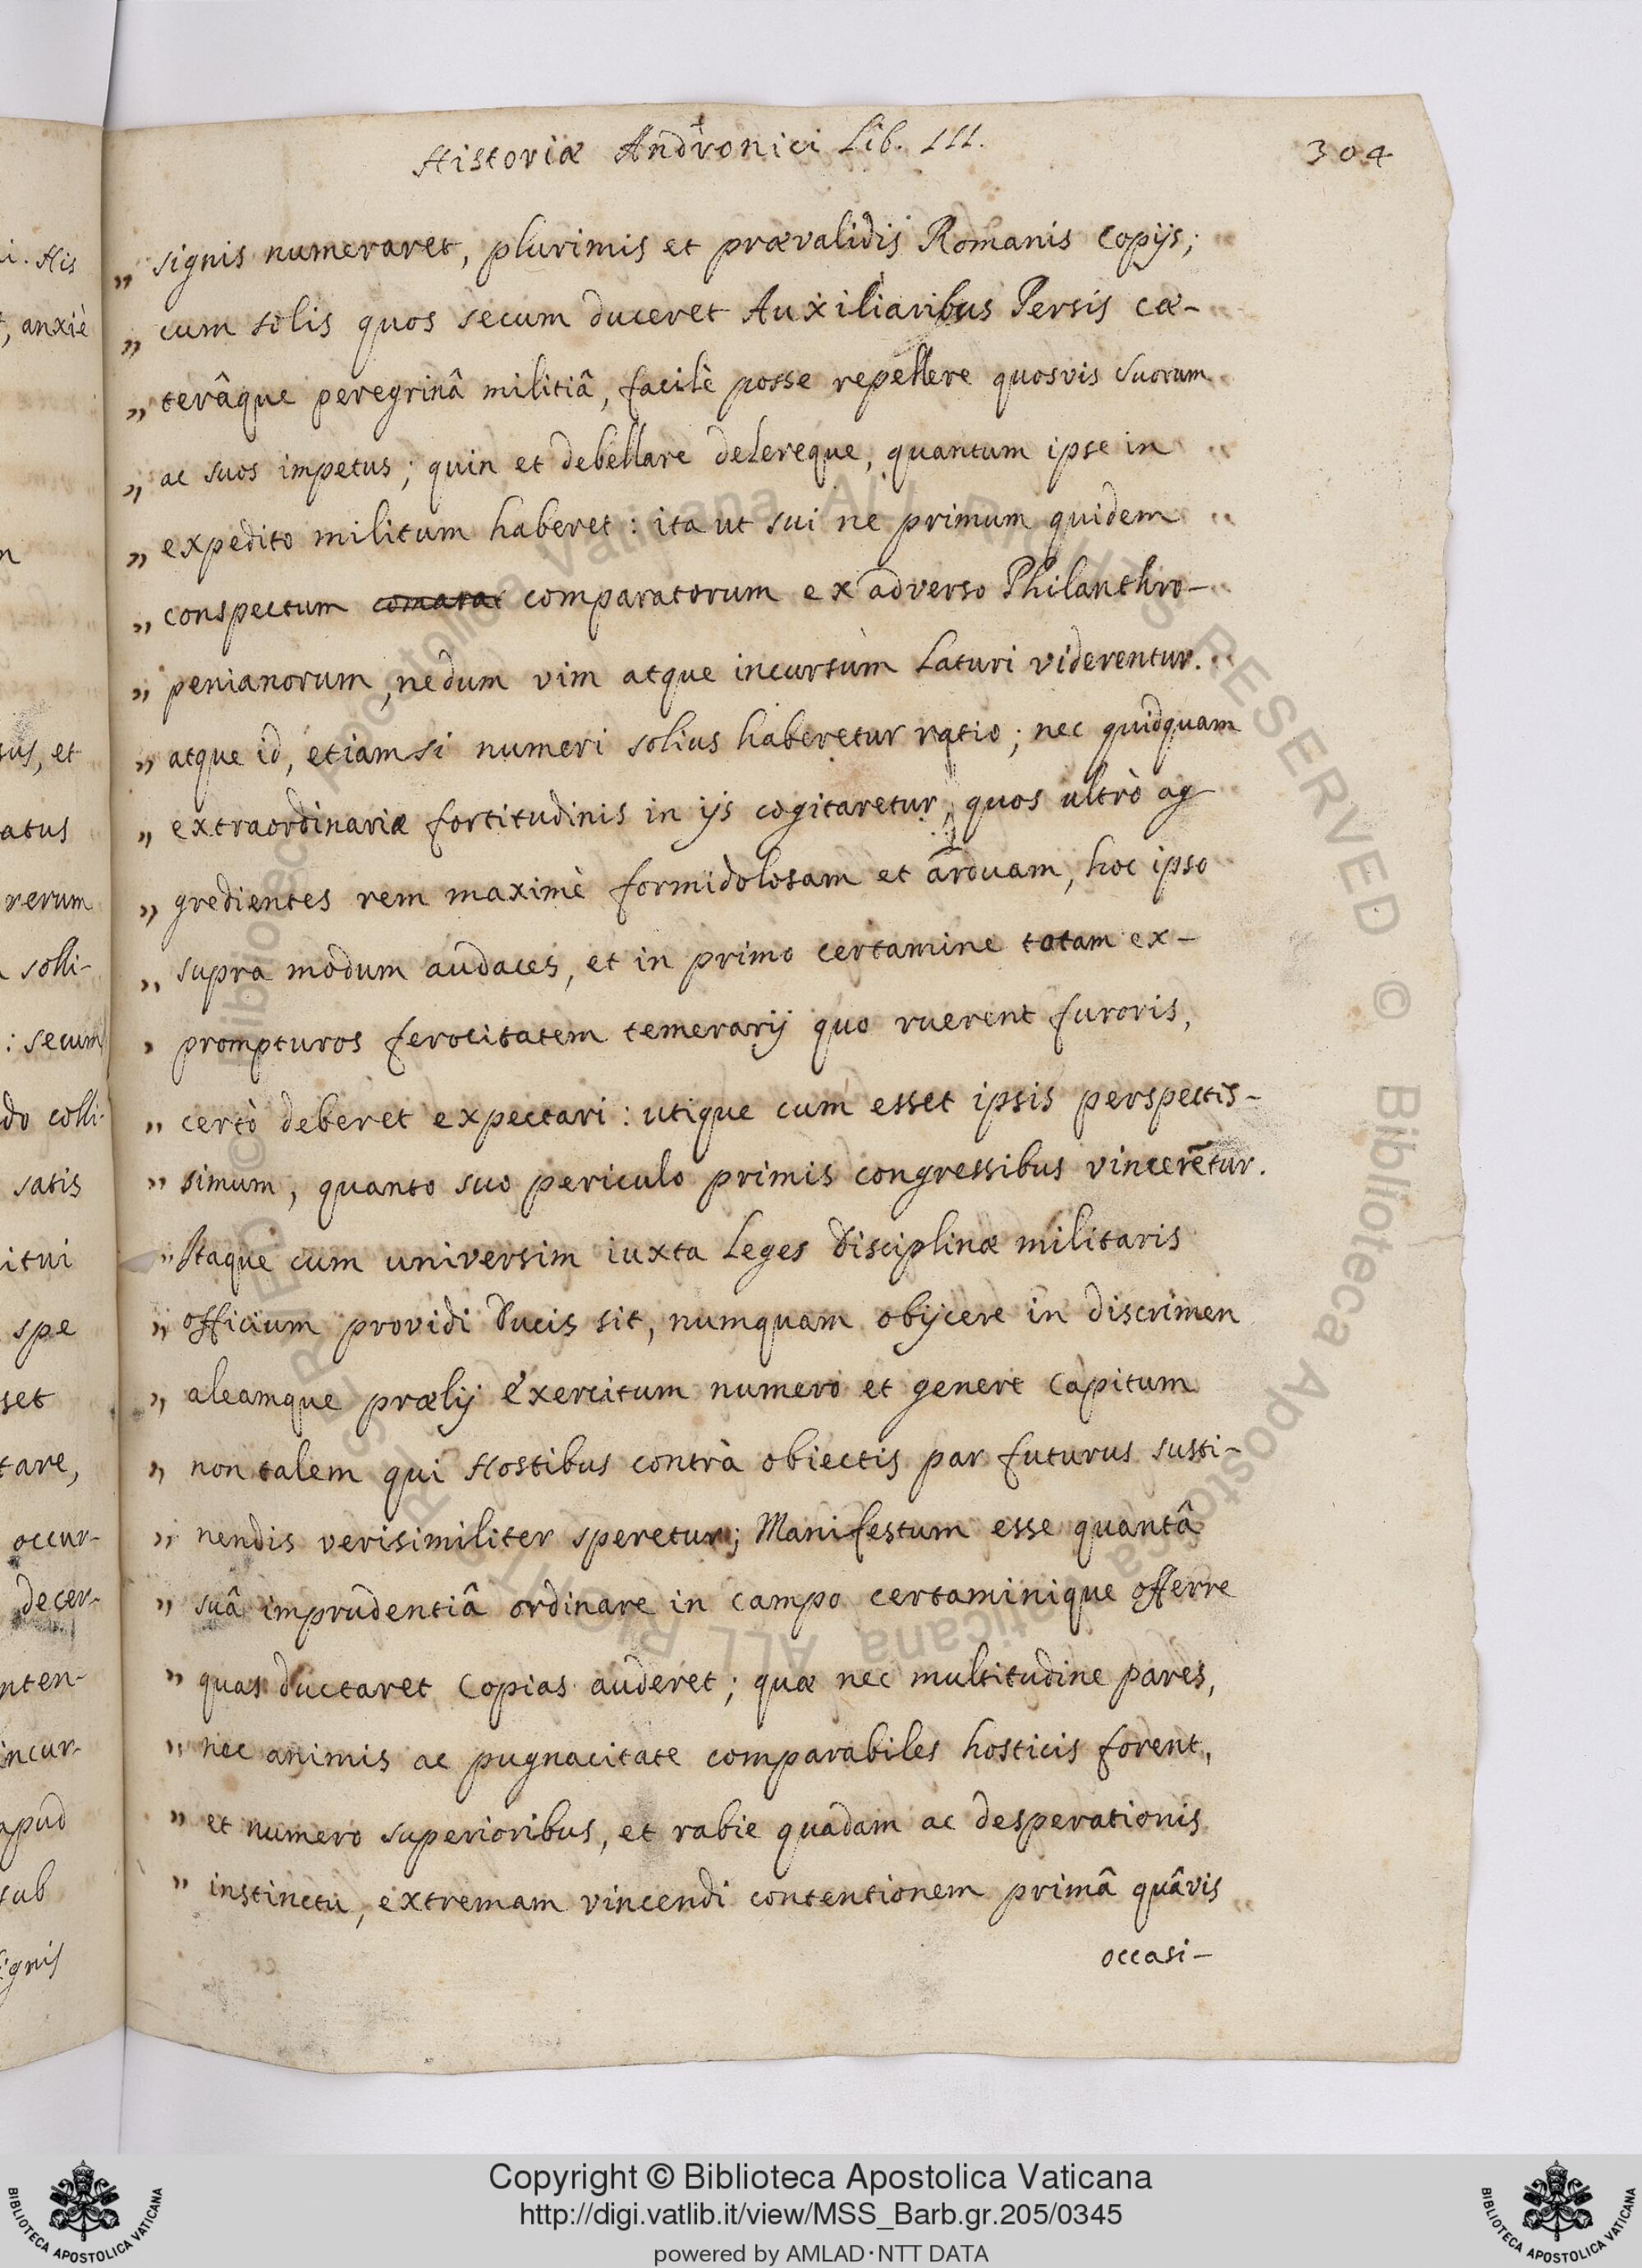 Historiæ Andronici Lib. III.
304
„ signis numeraret, plurimis et prævalidis Romanis Copijs;
„ cum solis quos secum duceret Auxiliaribus Persis cæ-
„ terâque peregrinâ militiâ, facilè posse repellere quosvis suorum
„ ac suos impetus; quin et debellare delereque, quantum ipse in
„ expedito militum haberet: ita ut sui ne primum quidem
„ conspectum comparatorum ex adverso Philanthro-
„ penianorum, nedum vim atque incursum laturi viderentur.
„ atque id, etiamsi numeri solius haberetur ratio; nec quidquam
„ extraordinariæ fortitudinis in ijs cogitaretur, quos ultrò ag
„ gredientes rem maximè formidolosam et arduam, hoc ipso
„ supra modum audaces, et in primo certamine totam ex-
„ prompturos ferocitatem temerarij quo ruerent furoris,
„ certò deberet expectari: utique cum esset ipsis perspectis-
„ simum, quanto suo periculo primis congressibus vincerẽtur.
„ Itaque cum universim iuxta Leges Disciplinæ militaris
„ officium providi Ducis sit, numquam obijcere in discrimen
„ aleamque prælij Exercitum numero et genere Capitum
„ non talem qui Hostibus contrà obiectis par futurus susti-
„ nendis verisimiliter speretur; Manifestum esse quantâ
„ suâ imprudentiâ ordinare in campo certaminique offerre
„ quas ductaret Copias auderet; quæ nec multitudine pares,
„ nec animis ac pugnacitate comparabiles hosticis forent,
„ et numero superioribus, et rabie quadam ac desperationis
„ instinctu, extremam vincendi contentionem primâ quâvis
occasi-
i. His
, anxiè
n
sus, et
atus
rerum
solli-
: secum
do colli-
satis
itui
spe
set
tare,
occur-
decer-
nten-
incur-
apud
sub
signis
Biblioteca Apostolica Vaticana ALL RIGHTS RESERVED © Biblioteca Apostolica Vaticana ALL RIGHTS RESERVED ©
Copyright © Biblioteca Apostolica Vaticana
http://digi.vatlib.it/view/MSS_Barb.gr.205/0345
powered by AMLAD·NTT DATA
BIBLIOTECA APOSTOLICA VATICANA
BIBLIOTECA APOSTOLICA VATICANA